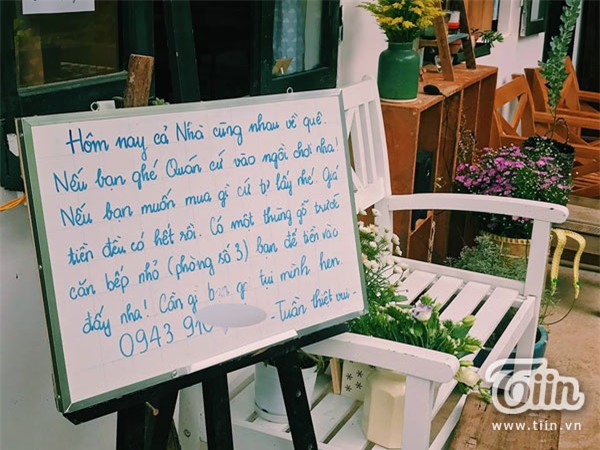 Hôm nay cả Nhà cùng nhau về quê.
Nếu bạn ghé Quán cứ vào ngồi chơi nha!
Nếu bạn muốn mua gì cứ tự lấy nhé. Giá
tiền đều có hết rồi. Có một thùng gỗ trước
căn bếp nhỏ (phòng số 3) bạn để tiền vào
đấy nha! Cần gì bạn gọi tụi mình hen.
0943 910 - Tuấn thiệt vui -
Tiin
www.tiin.vn